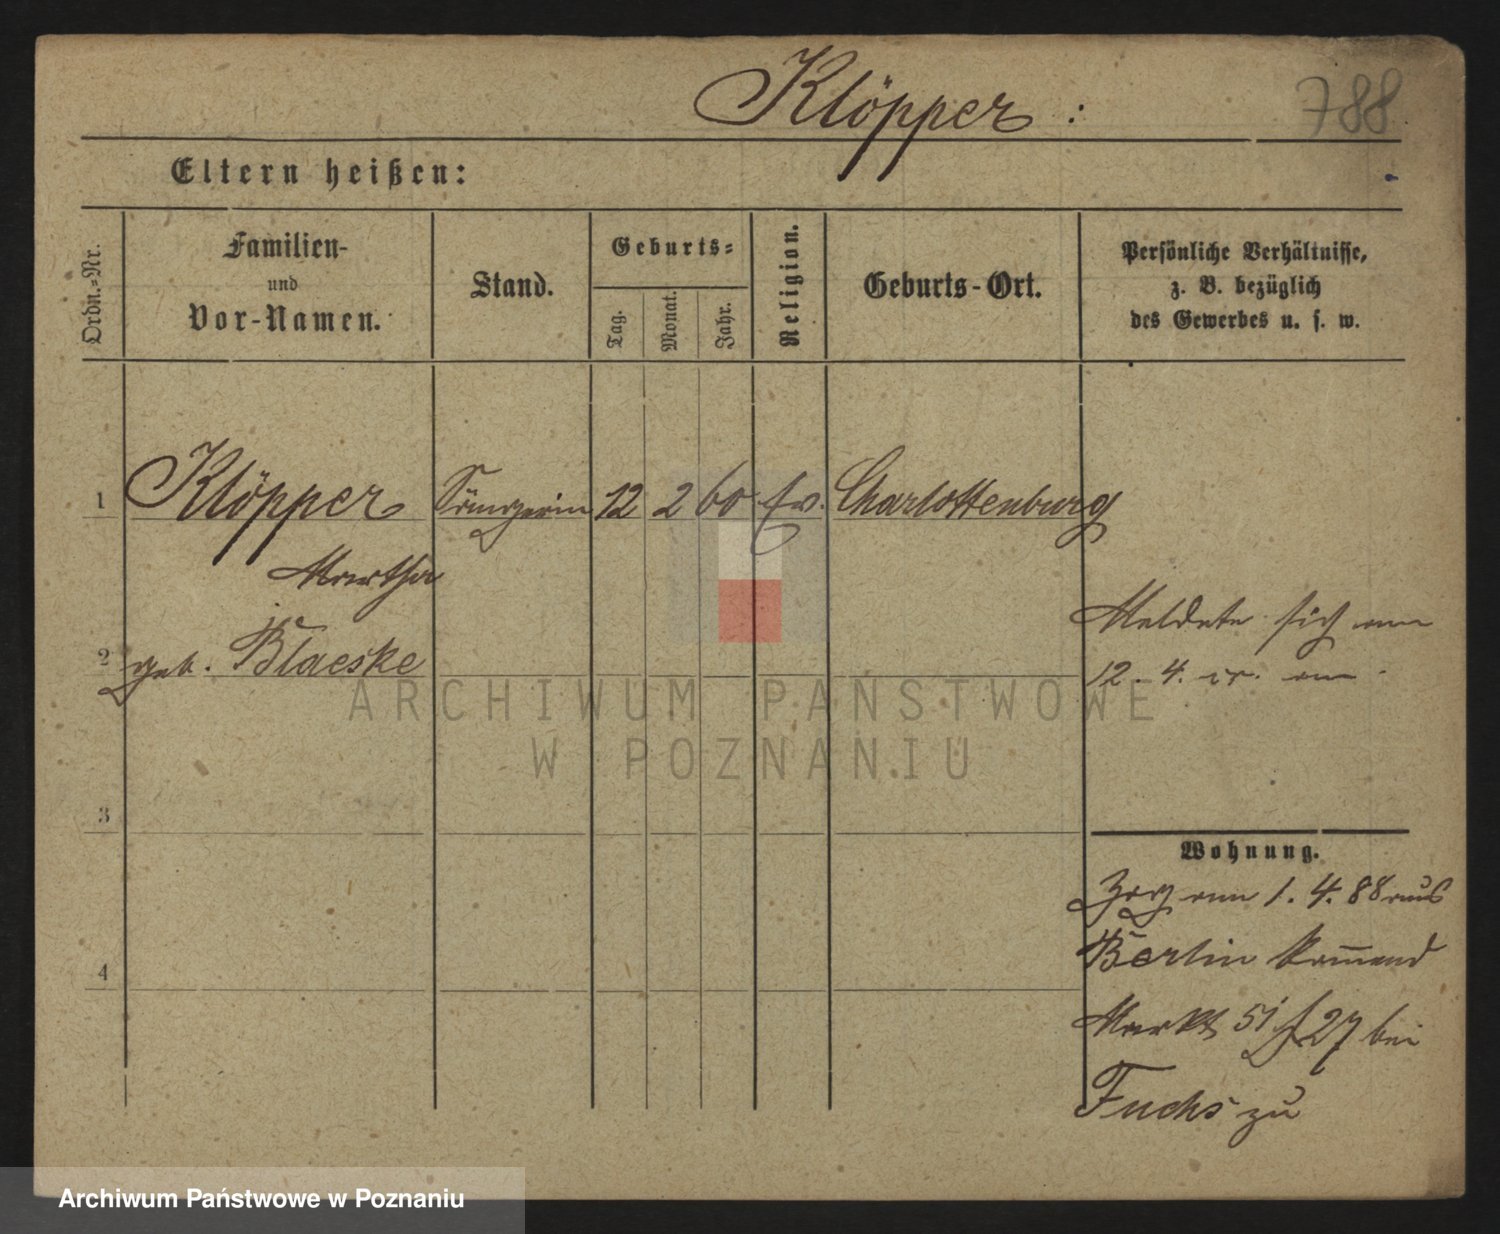 Klöpper :
788
Eltern heißen:
Ordn.-Nr.
Familien-
und
Vor-Namen.
Stand.
Geburts-
Tag.
Monat.
Jahr.
Religion.
Geburts-Ort.
Persönliche Verhältnisse,
z. B. bezüglich
des Gewerbes u. s. w.
1 Klöpper Sängerin 12 2 60 Ev. Charlottenburg
Martha
2 geb. Blaeske
Meldete sich am
12. 4. cr. an
ARCHIWUM PAŃSTWOWE
W POZNANIU
3
Wohnung.
Zog am 1. 4. 88 aus
4 Berlin kom̅end
Markt 51 27 bei
Fuchs zu
Archiwum Państwowe w Poznaniu